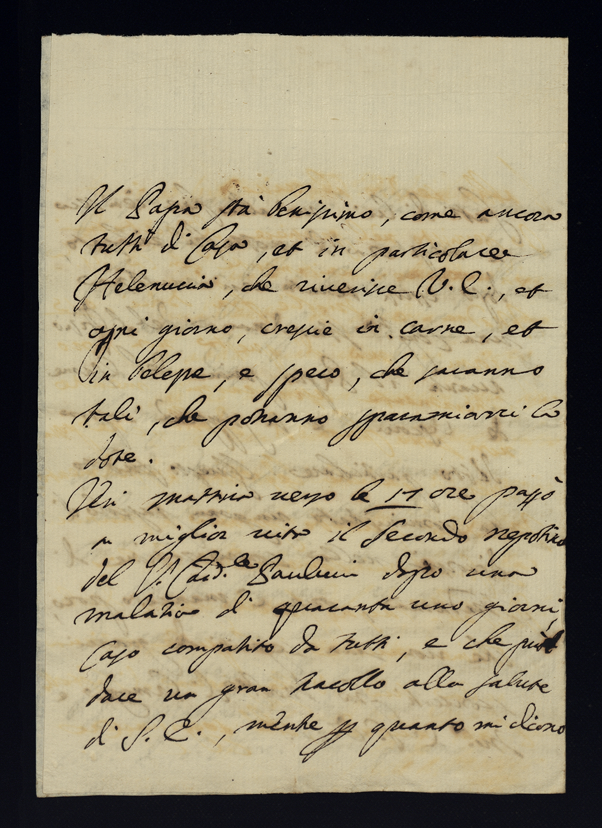 Il Papa sta benissimo, come ancora
tutti di Casa, et in particolare
Helenuccia, che riverisce V. E., et
ogni giorno, cresce in carne, et
in belesse, e spero, che saranno
tali, che potranno sparamiarci la
dote.
Ieri mattina verso le 17 ore passò
a miglior vita il secondo nepotino
del S.r Card.le Paulucci dopo una
malatia di quaranta uno giorni,
caso compatito da tutti, e che può
dare un gran tracollo alla salute
di S. E., mentre p quanto mi dicono